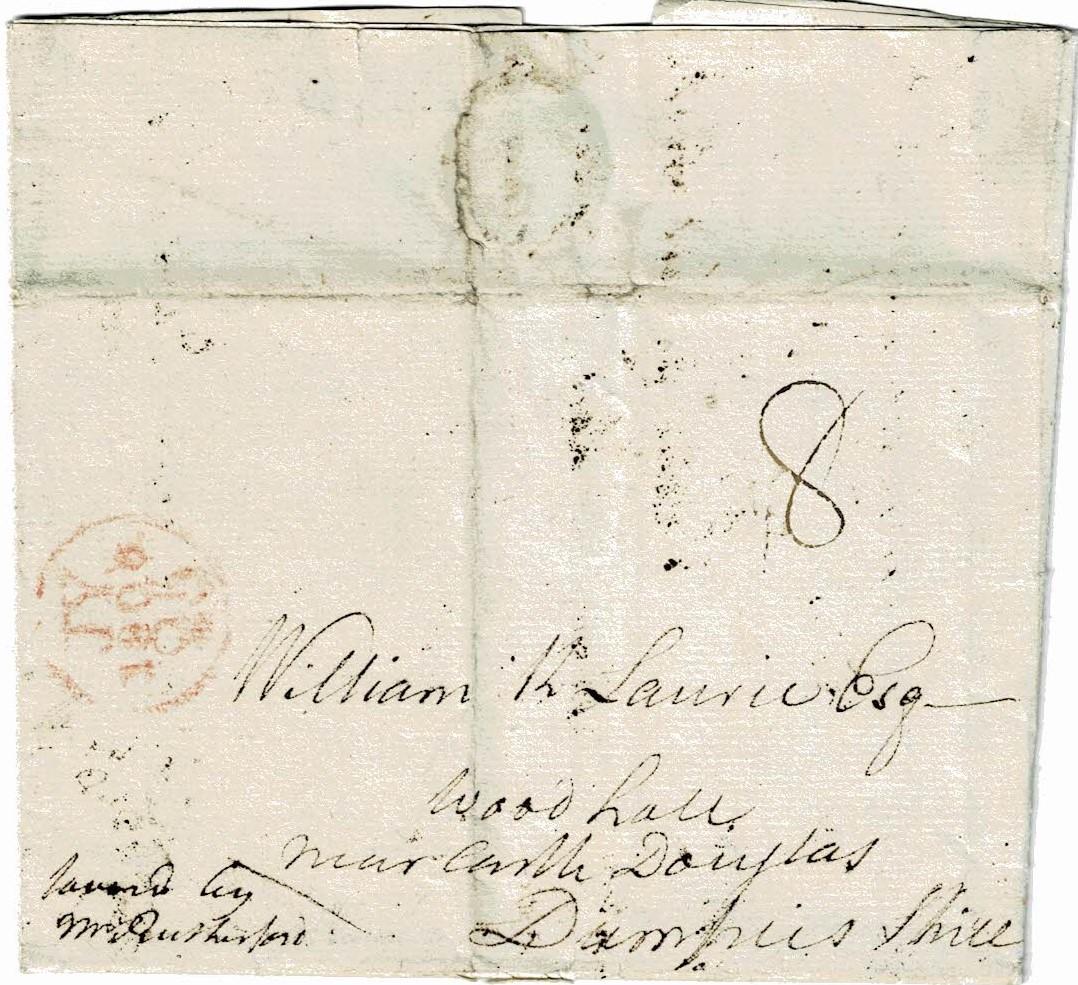 8
JY
1806
William K Laurie Esq
Wood hall
near Castle Douglas
Dumfries Shire
favored by
Mr Rutherford